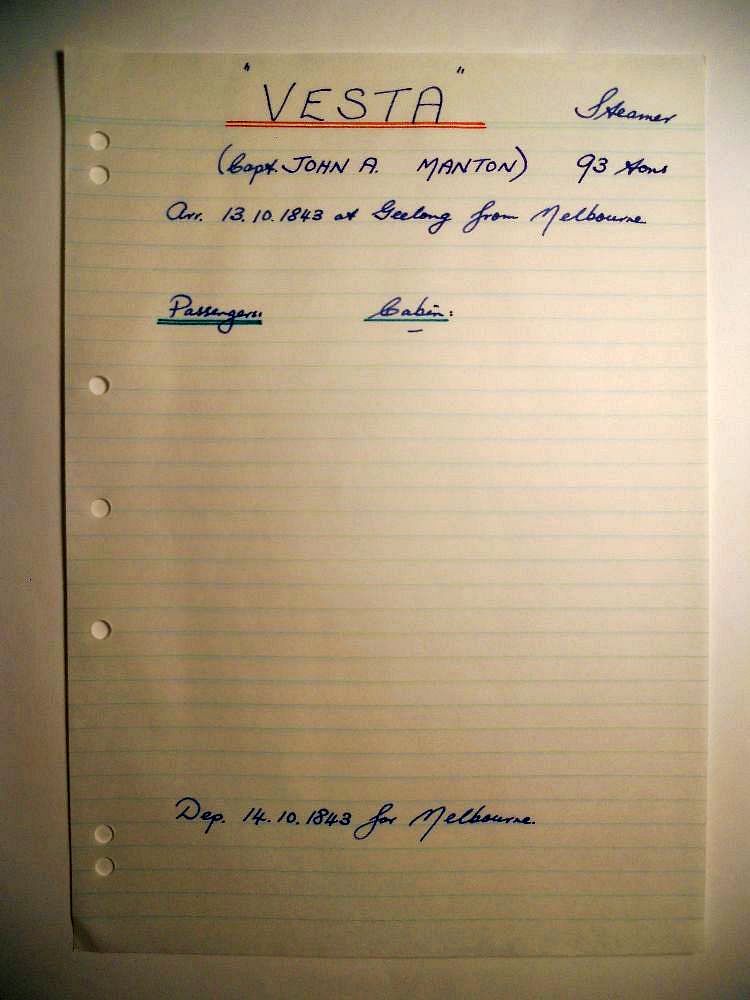 "VESTA" Steamer
(Capt. JOHN A. MANTON) 93 tons
Arr. 13.10.1843 at Geelong from Melbourne
Passengers: Cabin:
–
Dep. 14.10.1843 for Melbourne.